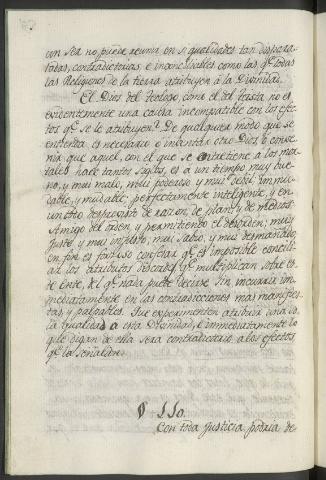 un ser no puede reunir en si qualidades tan dispara-
tadas, contradictorias, e inconciliables como las qe. todas
las Religiones de la tierra atribuyen à la Divinidad.
El Dios del Teologo, como el del Teista no es
evidentemente una causa incompatible con los efec-
tos qe. se le atribuyen. De qualquier modo que se
entienda es necesario ò inventar otro Dios ò conve-
nir que aquel, con el que se entretiene a los mor-
tales hace tantos siglos, es a un tiempo muy bue-
no, y muy malo, mui poderoso y mui debil, inmu-
dable, y mudable; perfectamente inteligente, y en
un todo desprovisto de razon, de plan, y de medios:
Amigo del orden y permitiendo el desorden; muy
justo y mui injusto; mui sabio, y mui desmañado;
en fin es forzoso confesar qe. es imposible concili-
ar los atributos discordes qe. multiplican sobre es-
te Ente, del qe. nada puede decirse sin incurrir in-
mediatamente en las contradicciones mas manifies-
tas, y palpables. Que experimenten atribuir una so-
la qualidad a esta Divinidad, e inmediatamente lo
que digan de ella sera contradictorio a los efectos
qe. la señalaren.
§ 110.
Con toda justicia podria de-